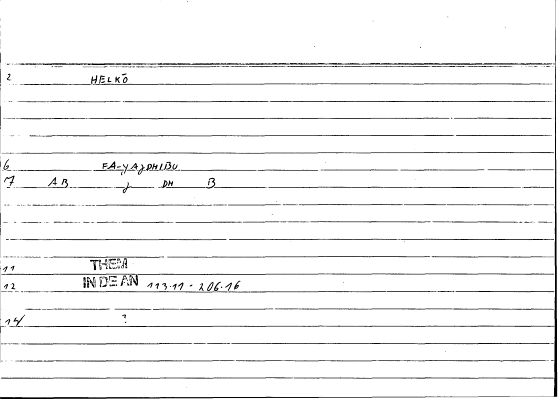 2 HELKÖ
6 FA-YAJDHIBU
7 AB J DH B
11 THEM
12 INDEAN 113.11 - 206.16
14 ?